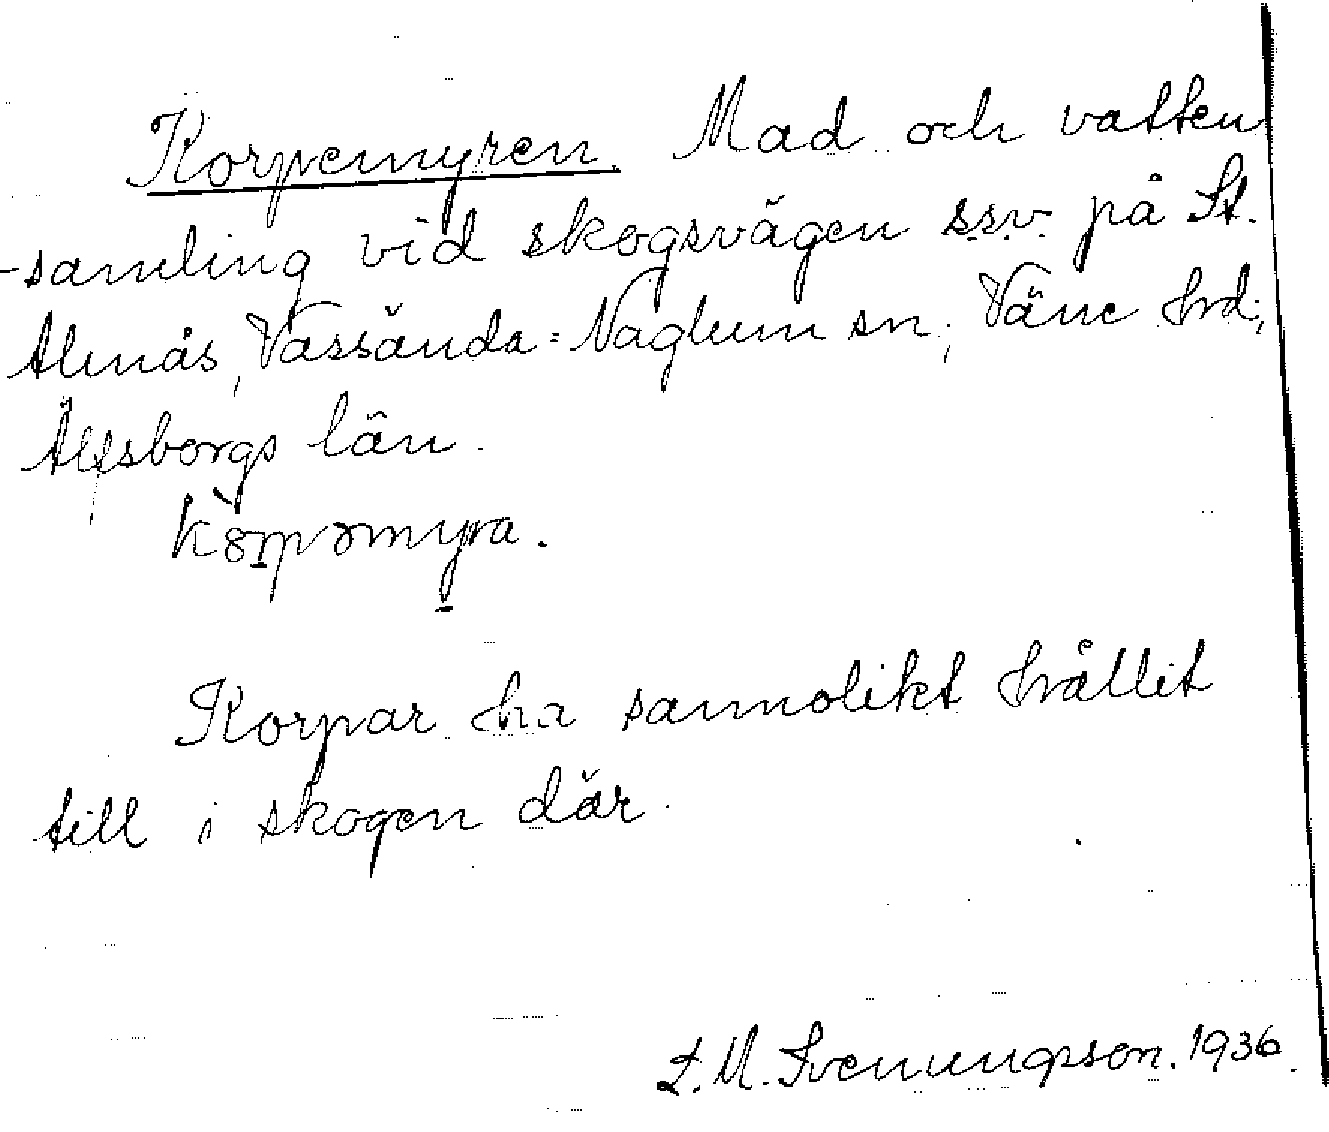 Korpemyren. Mad och vatten
-samling vid skogsvägen s.s.v. på St.
Almås, Vassända=Naglum sn; Väne hrd;
Älfsborgs län.
kȯrpəmyra.
Korpar ha sannolikt hållit
till i skogen där.
L. M. Svenungsson. 1936.